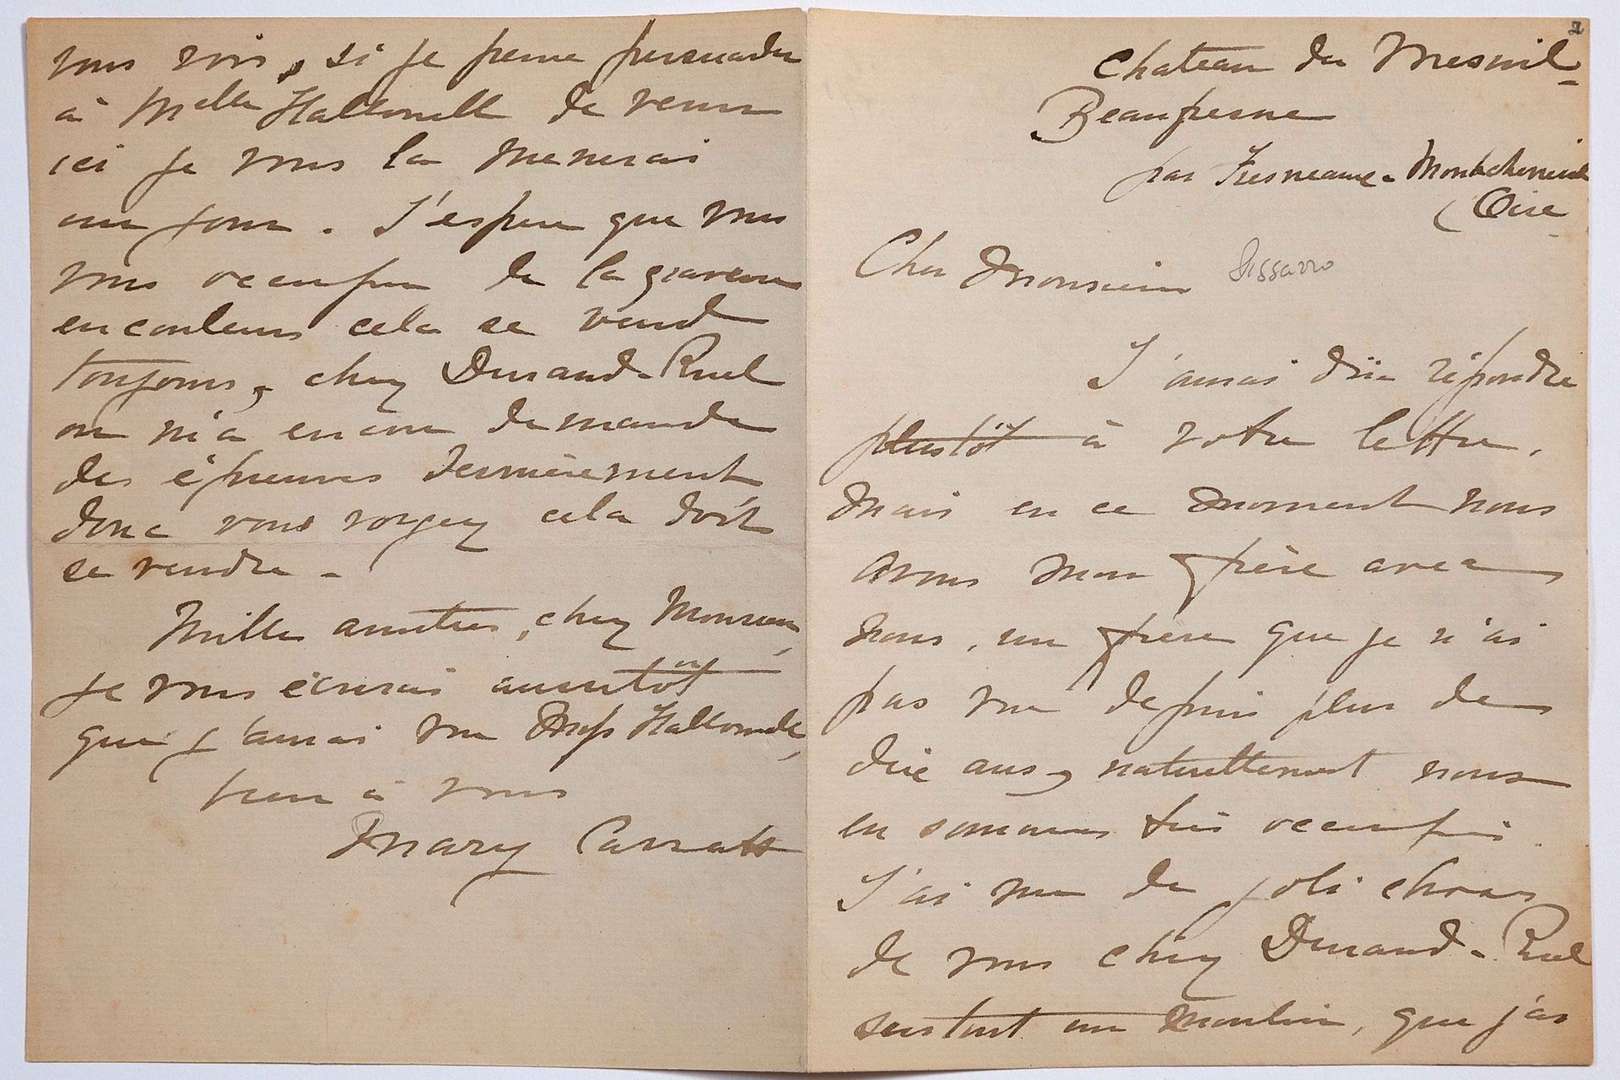 2
Chateau du Mesnil-
Beaufresne
par Fresneaux-Montchevreuil
(Oise
Cher Monsieur Pissarro
J'aurai dûe répondre
plustôt à votre lettre,
mais en ce moment nous
avons mon frère avec
nous, un frère que je n'ai
pas vu depuis plus de
dix ans, naturellement nous
en sommes très occupés.
J'ai vu de joli choses
de vous chez Durand-Ruel
surtout un moulin, que j'ai
vous voir, si je peux persuader
à Melle Hallowell de venir
ici je vous la menerai
un jour. J'espere que vous
vous occupez de la gravure
en couleurs cela se vend
toujours, chez Durand-Ruel
on m'a encore demandé
des épreuves dernièrement
donc vous voyez cela doit
se vendre -
Mille amitiés, cher Monsieur,
je vous écrirai aussitôt
que j'aurai vu Miss Hallowell,
bien à vous
Mary Cassatt